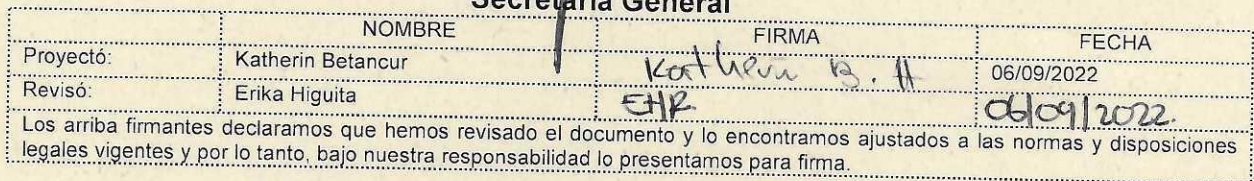 Secretaria General
NOMBRE FIRMA FECHA
Proyectó: Katherin Betancur Katherin B. H 06/09/2022
Revisó: Erika Higuita EHR 06/09/2022.
Los arriba firmantes declaramos que hemos revisado el documento y lo encontramos ajustados a las normas y disposiciones
legales vigentes y por lo tanto, bajo nuestra responsabilidad lo presentamos para firma.